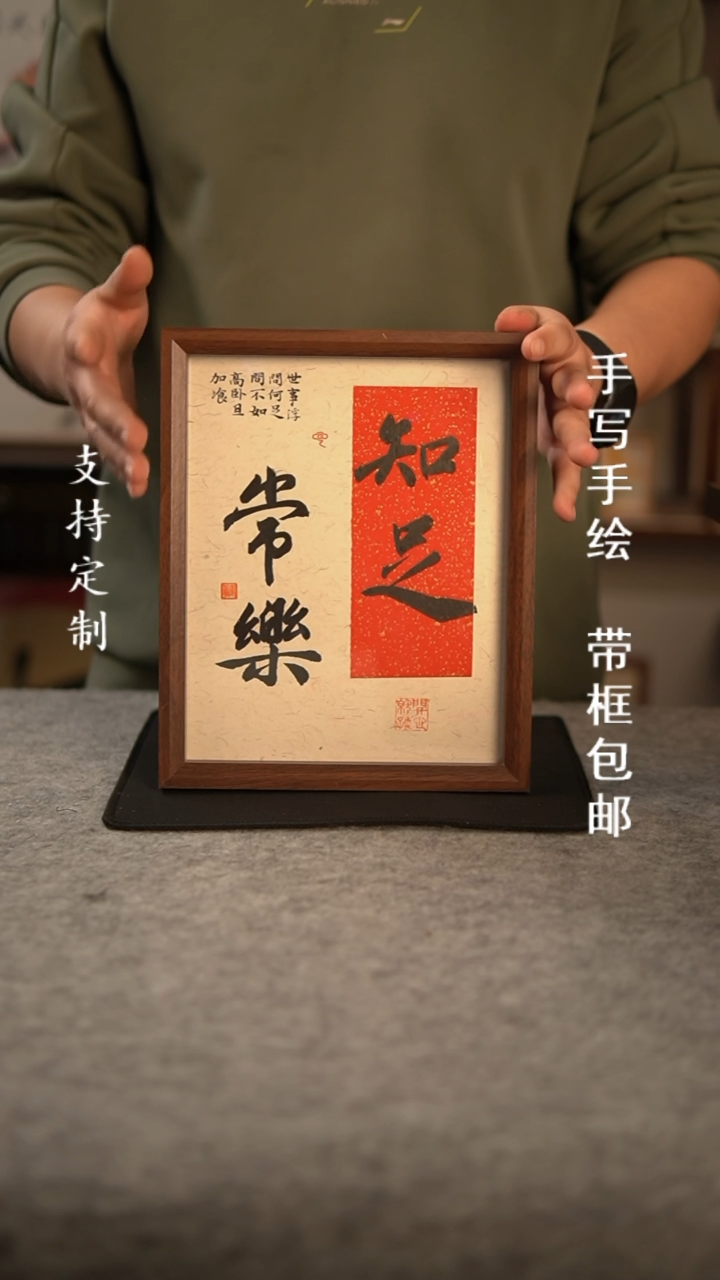 手写手绘 带框包邮
知足
常樂
世事浮
間何足
問不如
高卧且
加
支持定制